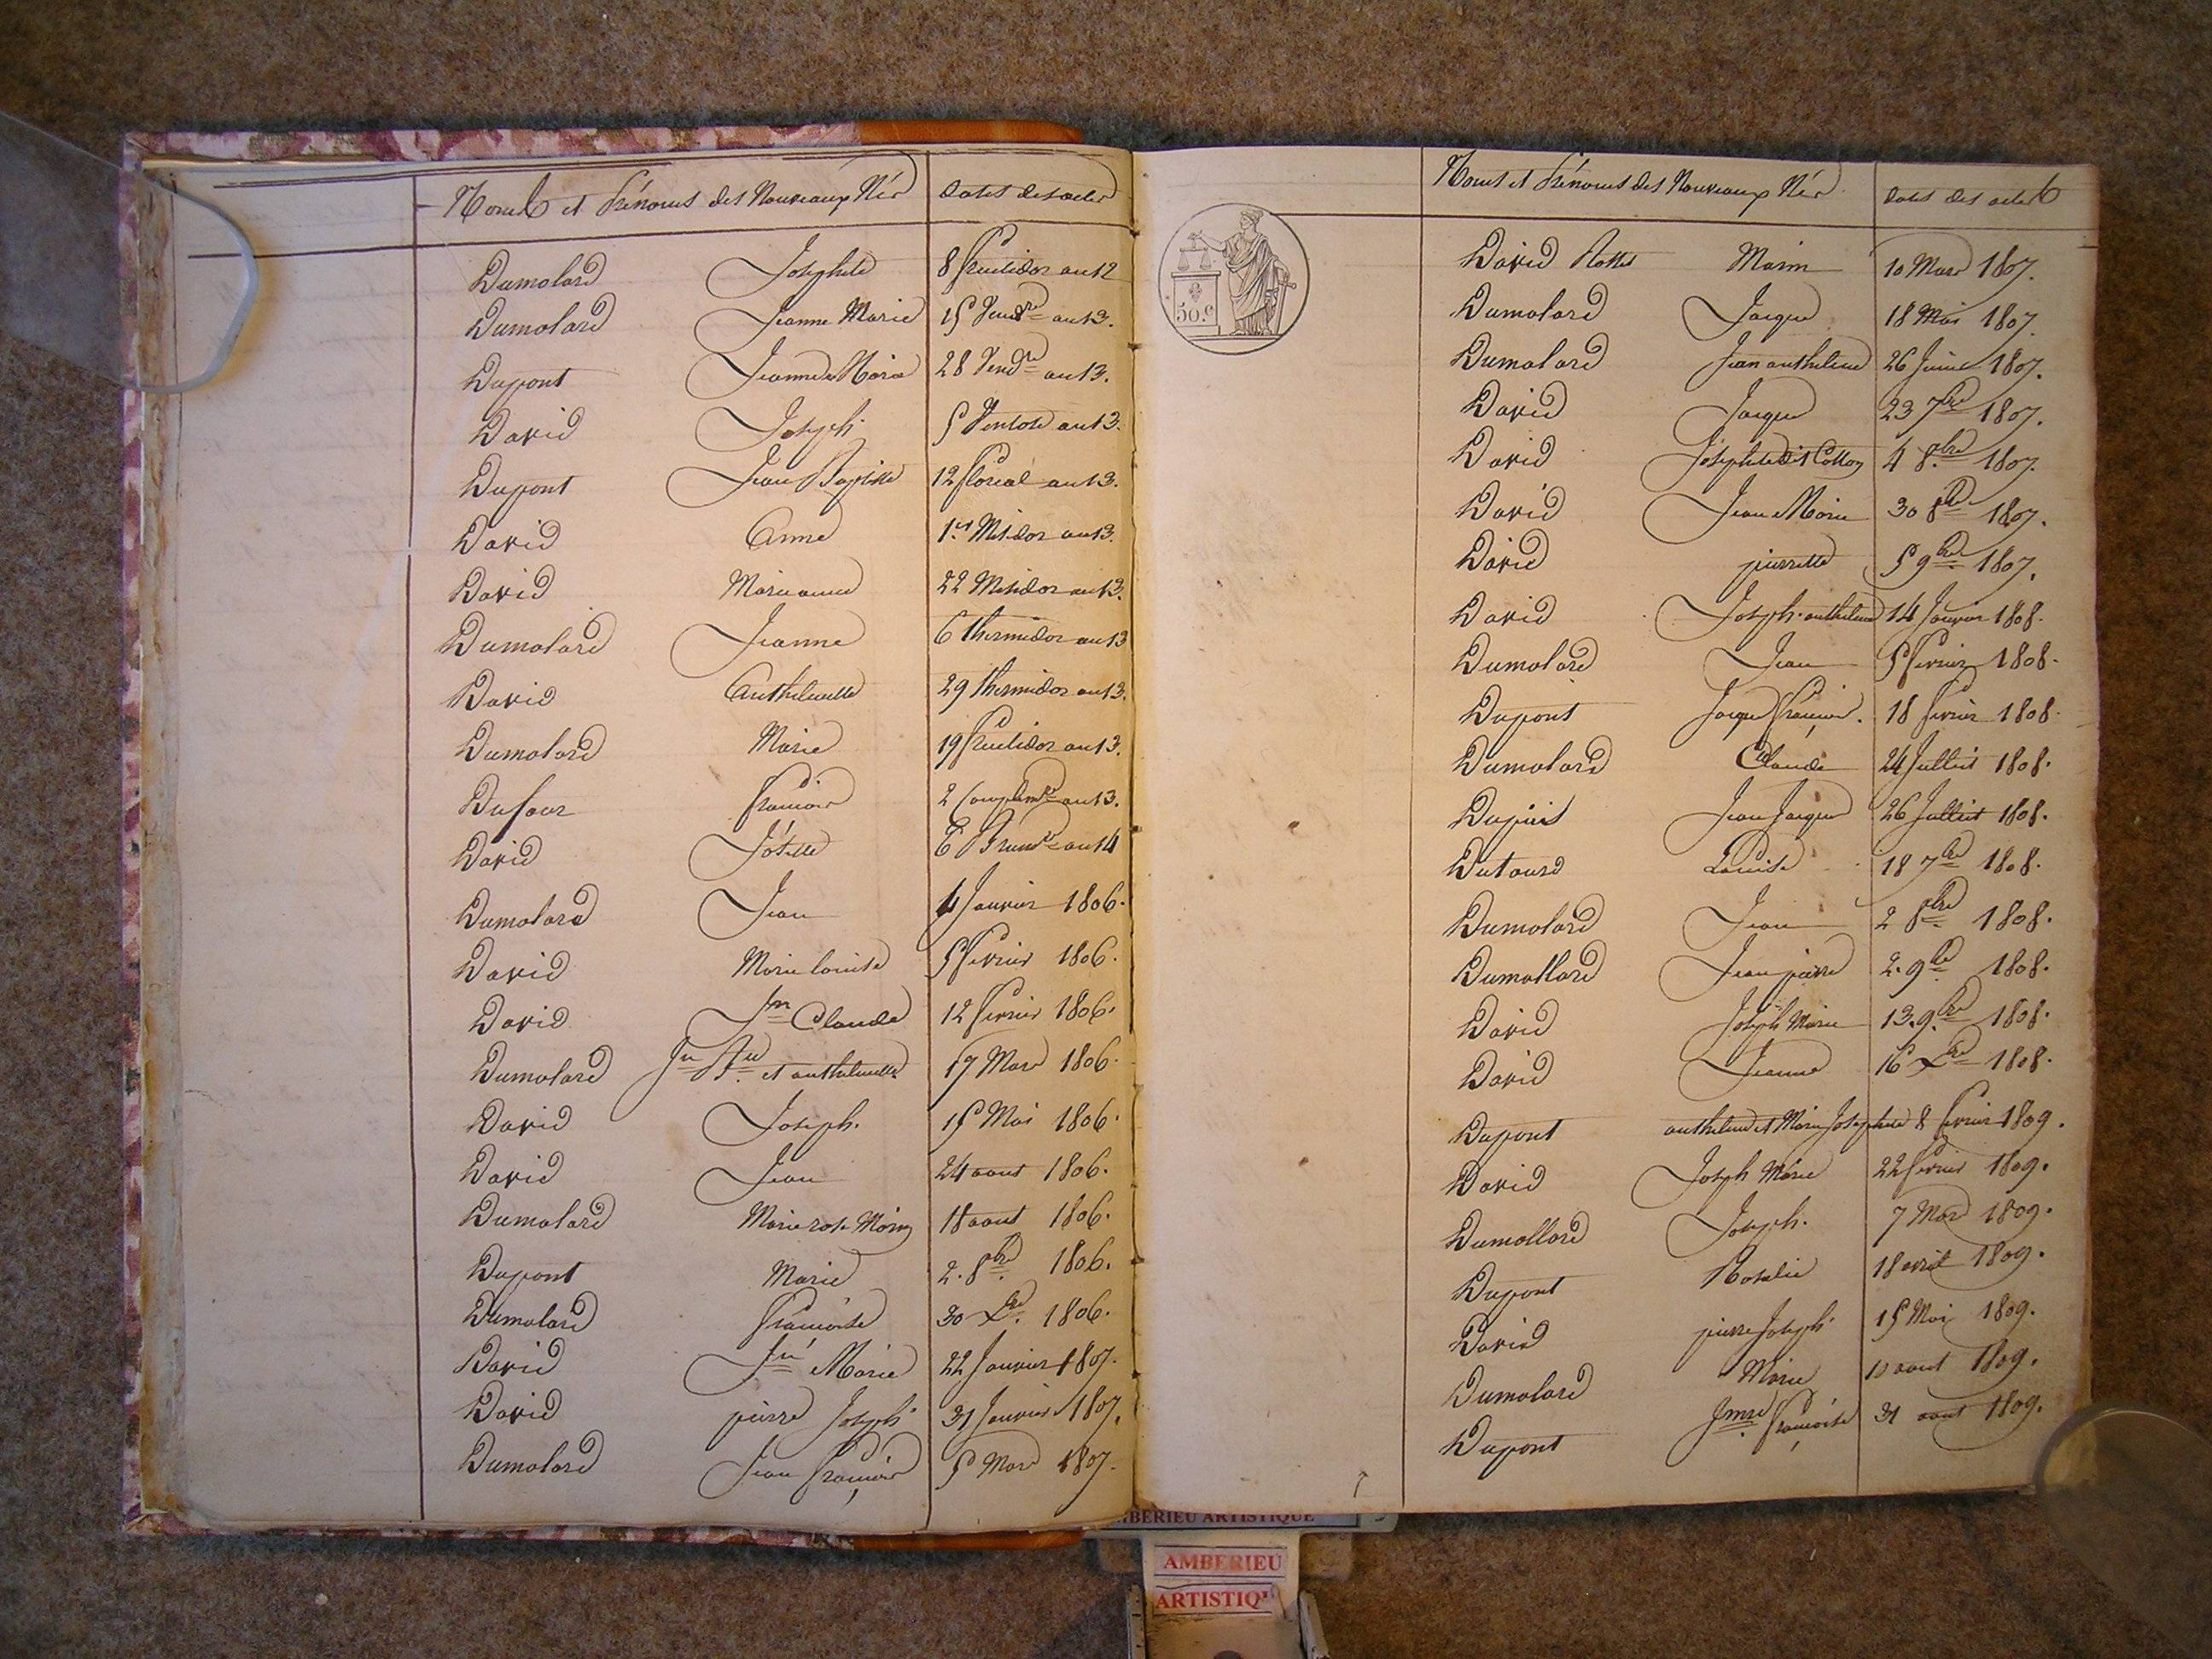 Noms et Prénoms des Nouveaux Nés Dates des actes
Dumolard Josephte 8 fructidor an 12
Dumolard Jeanne Marie 15 Vend.re an 13.
Dupont Jeanne Marie 28 Vend.re an 13.
David Joseph 5 Ventose an 13.
Dupont Jean Baptiste 12 floréal an 13.
David Anne 1.er Messidor an 13.
David Marie anne 22 Messidor an 13.
Dumolard Jeanne 6 thermidor an 13
David Anthelmette 29 thermidor an 13.
Dumolard Marie 19 fructidor an 13.
Dufour francois 2 Complem.re an 13.
David Josette 6 Brum.re an 14
Dumolard Jean 4 Janvier 1806.
David Marie louise 5 fevrier 1806.
David Jn Claude 12 fevrier 1806.
Dumolard Jn et anthelmette 17 Mars 1806.
David Joseph. 15 Mai 1806.
David Jean 24 aout 1806.
Dumolard Marie rose 18 aout 1806.
Dupont Marie 2. 8bre 1806.
Dumolard francoise 30 Xbre 1806.
David Jn Marie 22 Janvier 1807.
David pierre Joseph 31 Janvier 1807.
Dumolard Jean françois 5 Mars 1807.
50.c
Noms et Prénoms des Nouveaux Nés Dates des actes
David Marin 10 Mars 1807.
Dumolard Jacque 18 Mai 1807.
Dumolard Jean anthelme 26 Juin 1807.
David Jacque 23 7bre 1807.
David Josephte dit 4 8bre 1807.
David Jean Marie 30 8bre 1807.
David pierrette 5 9bre 1807.
David Joseph anthelme 14 Janvier 1808.
Dumolard Jean 5 fevrier 1808.
Dupont Jacque françois. 18 fevrier 1808.
Dumolard Claude 24 Juillet 1808.
Dupuis Jean Jacque 26 Juillet 1808.
Dutour Louise 18 7bre 1808.
Dumolard Jean 2 8bre 1808.
Dumollard Jean pierre 2. 9bre 1808.
David Joseph Marie 13. 9bre 1808.
David Jeanne 16 Xbre 1808.
Dupont anthelme et Marie Josephte 8 fevrier 1809.
David Joseph Marie 22 fevrier 1809.
Dumollard Joseph. 7 Mars 1809.
Dupont Rosalie 18 avril 1809.
David pierre Joseph 15 Mai 1809.
Dumolard Marie 10 aout 1809.
Dupont françoise 31 aout 1809.
AMBERIEU ARTISTIQUE
AMBERIEU
ARTISTIQU